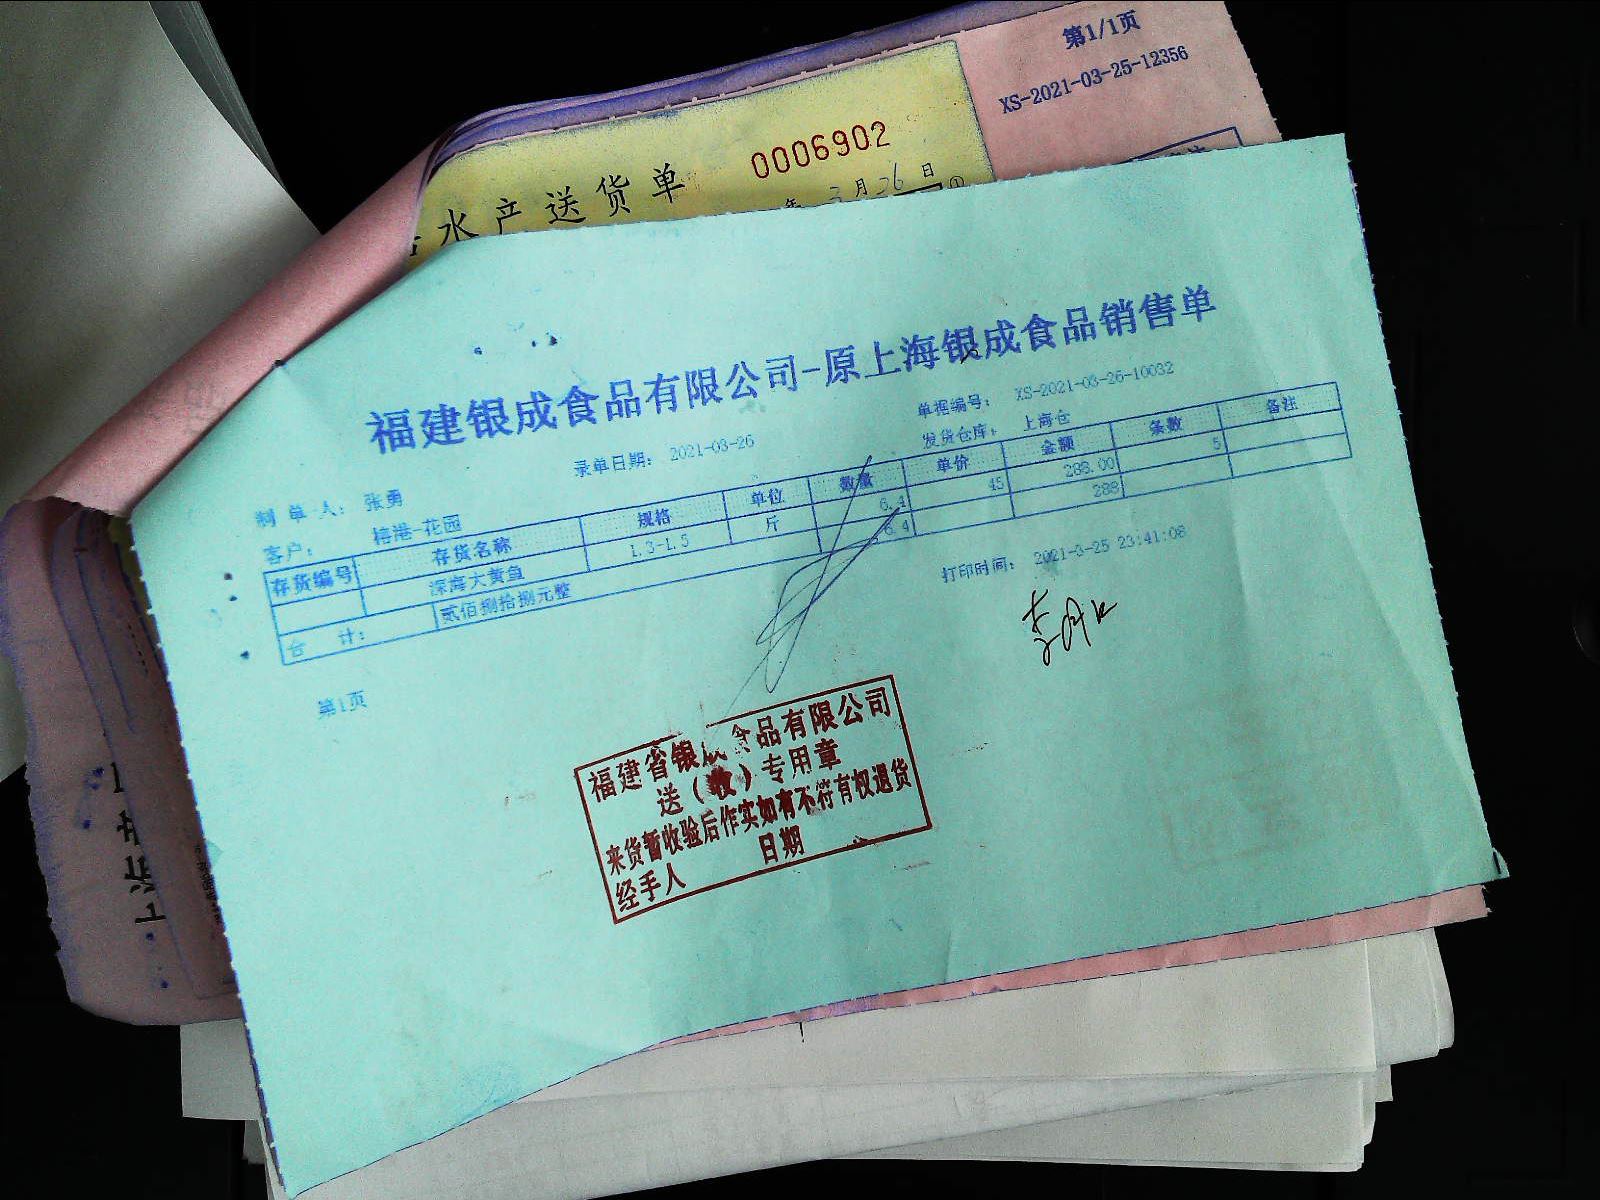 第1/1页
XS-2021-03-25-12356
0006902
水产送货单
年 3月26日
①
福建银成食品有限公司-原上海银成食品销售单
录单日期： 2021-03-26
单据编号： XS-2021-03-26-10032
制 单 人： 张勇
发货仓库： 上海仓
客户： 榕港-花园
存货编号 存货名称 规格 单位 数量 单价 金额 条数 备注
深海大黄鱼 1.3-1.5 斤 6.4 45 288.00 5
合 计： 贰佰捌拾捌元整 6.4 288
打印时间： 2021-3-25 23:41:08
第1页
福建省银成食品有限公司
送（收）专用章
来货暂收验后作实如有不符有权退货
经手人 日期
上海